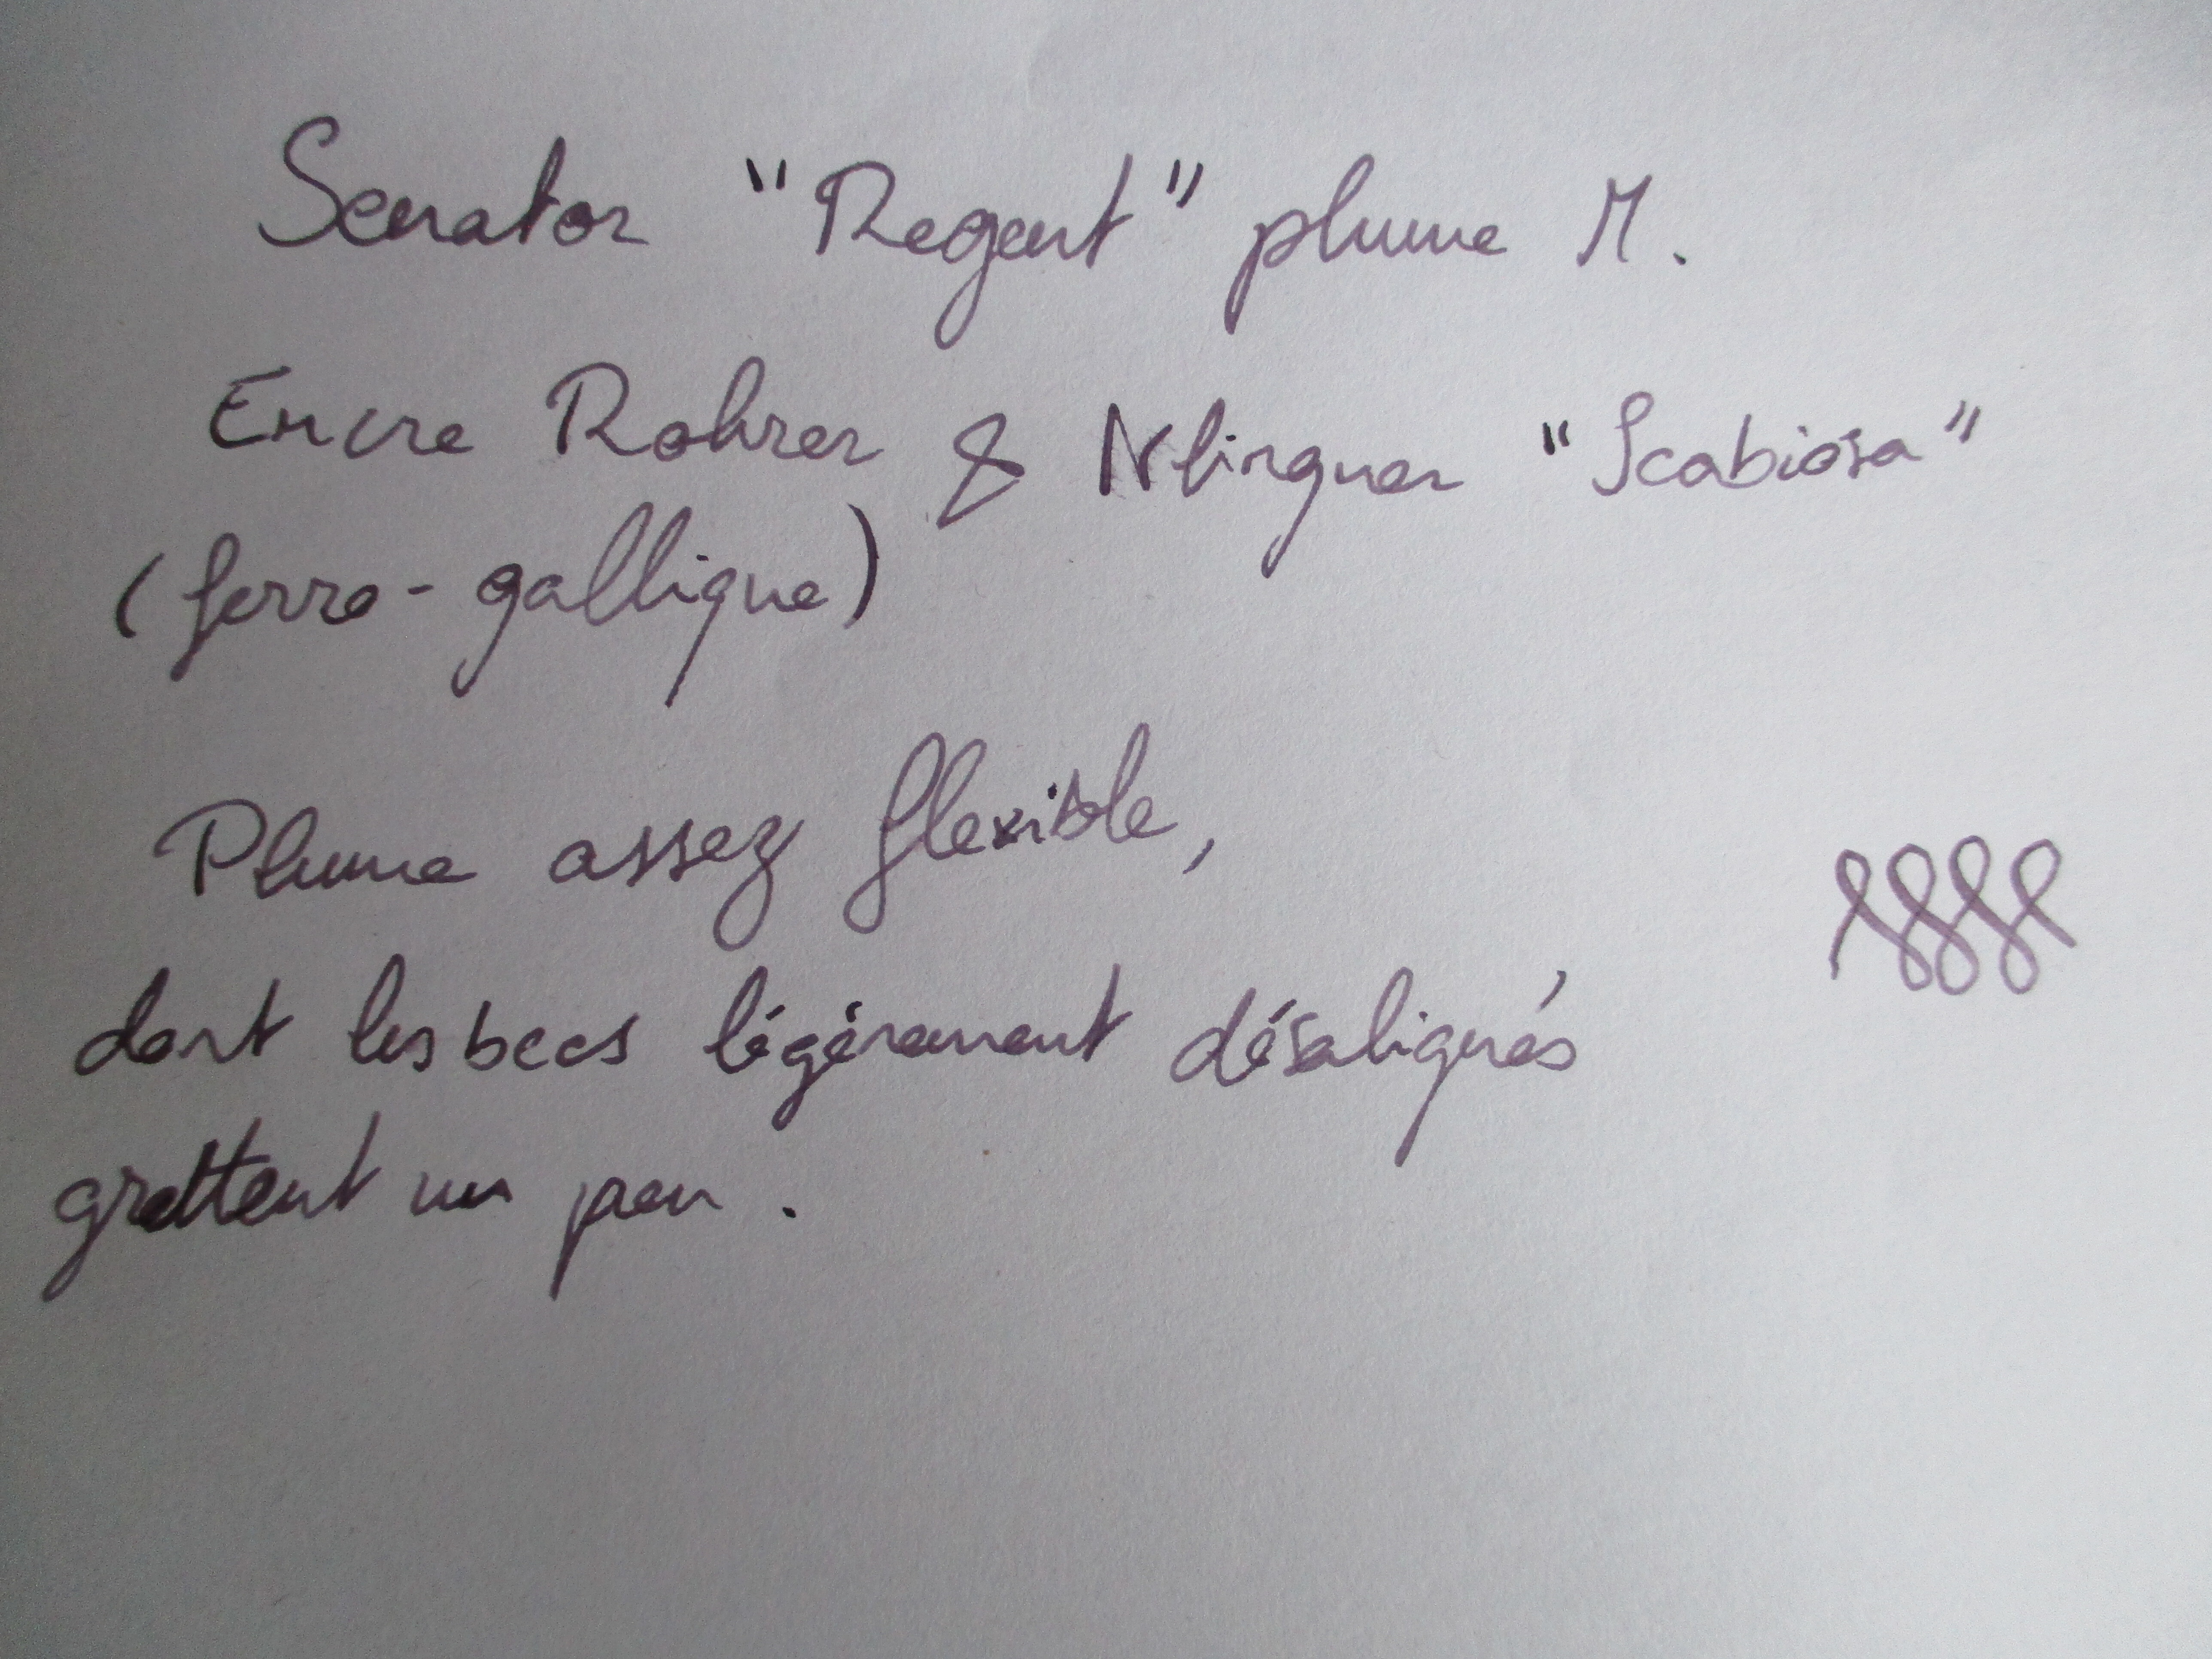 Senator "Regent" plume M.
Encre Rohrer & Klingner "Scabiosa"
(ferro-gallique)
Plume assez flexible,
dont les becs légèrement désalignés
grattent un peu.